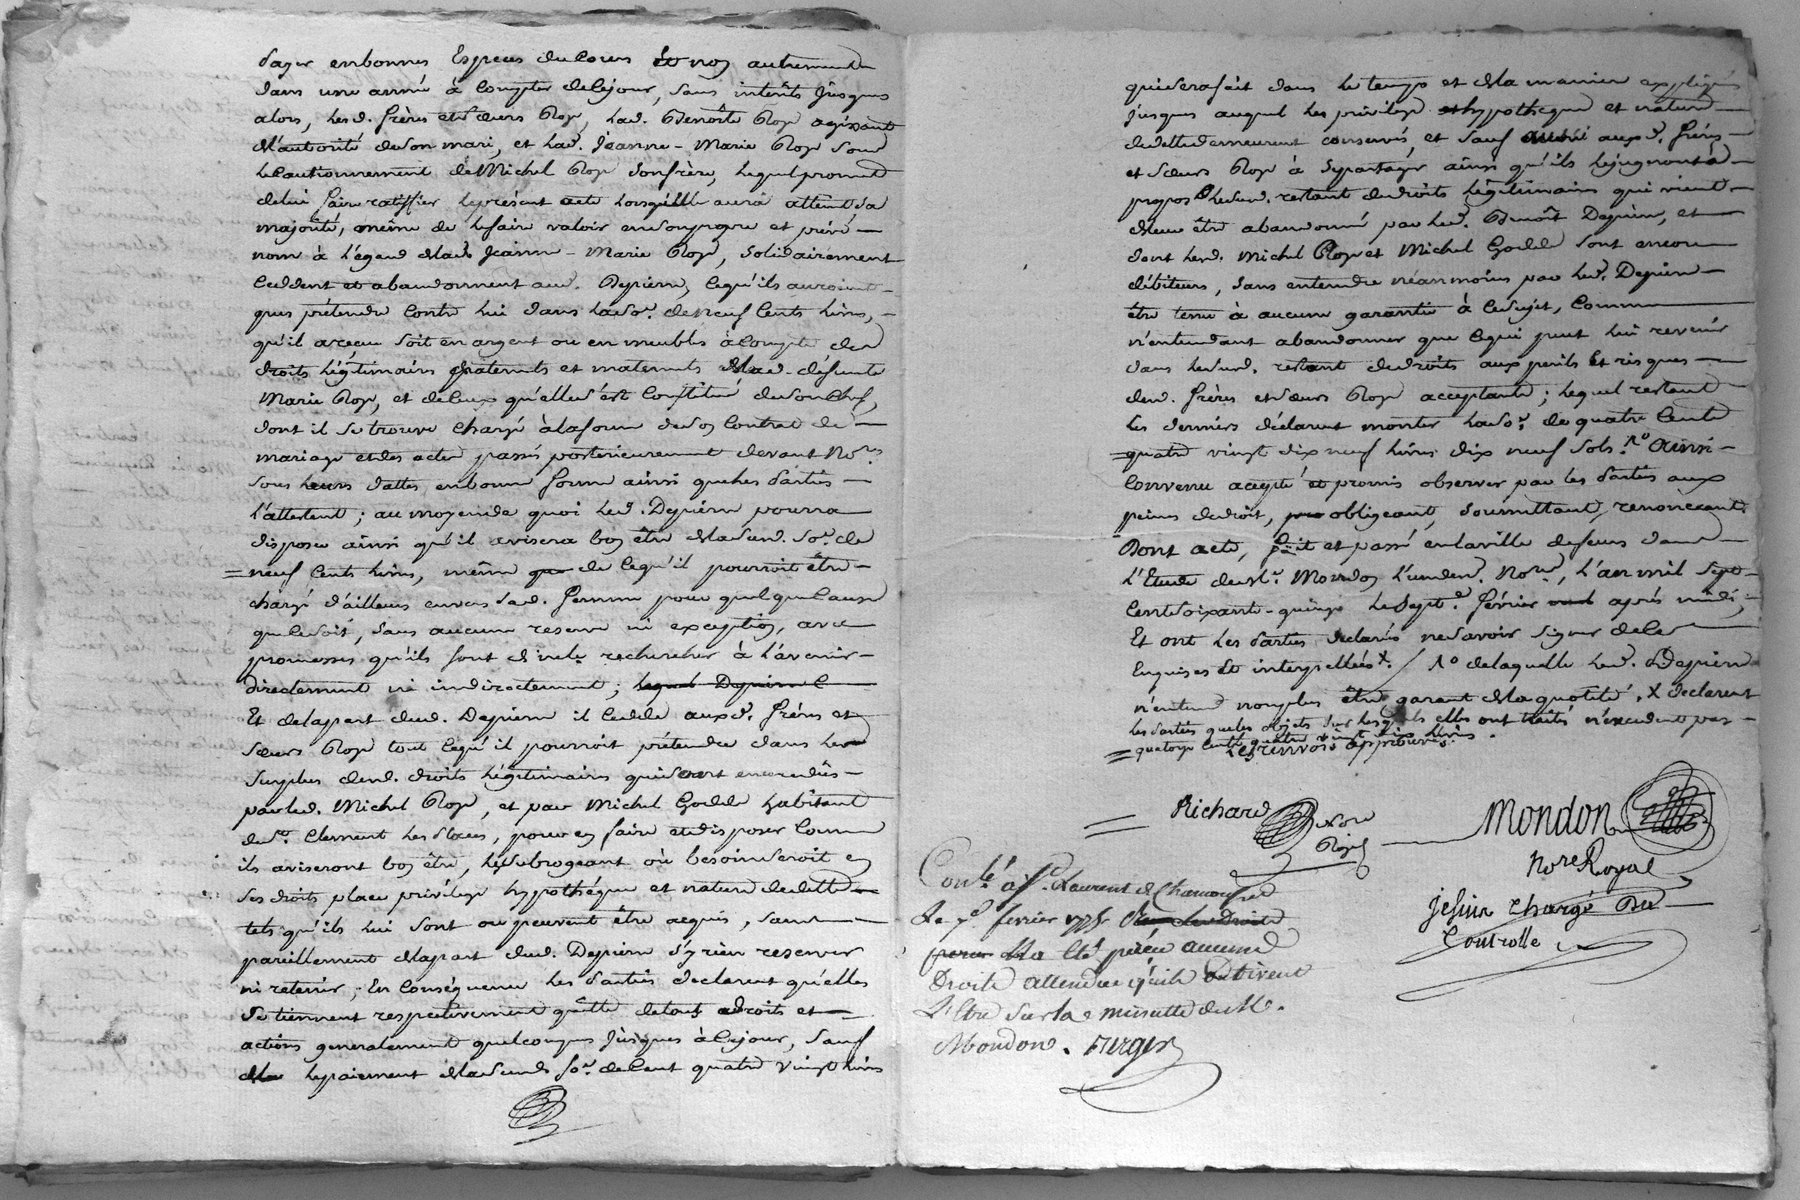 payer en bonnes Especes du Cours et non autrement
dans une année à compter de Ce jour, sans intérêts jusques
alors, lesd. frères et sœurs Roze, lad. Benoîte Roze agissant
de l'autorité de son mari, et lad. Jeanne-Marie Roze sous
le Cautionnement de Michel Roze son frère, lequel promet
de lui faire ratiffier le présent acte lorsqu'elle aura atteint sa
majorité, même de le faire valoir en son propre et privé
nom à l'égard de lad. Jeanne-Marie Roze, Solidairement
Ceddent et abandonnent aud. Depierre, Ce qu'ils auroient
pus prétendre Contre lui dans la So.e de neuf Cents livres,
qu'il a reçeu soit en argent ou en meubles à Compte des
droits légitimaires paternels et maternels de lad. défunte
Marie Roze, et de Ceux qu'elle s'est Constitué de son Chef,
dont il se trouve Chargé à la forme de son Contrat de
mariage et des actes passés postérieurement devant No.res
sous leurs dattes en bonne forme ainsi que les Parties
l'attestent; au moyen de quoi led. Depierre pourra
disposer ainsi qu'il avisera bon être de la susd. So.e de
neuf Cents livres, même de Ce qu'il pourroit être
chargé d'ailleurs envers sad. femme pour quelque Cause
que Ce soit, sans aucune reserve ni exception, avec
promesses qu'ils font de ne le rechercher à l'avenir
directement ni indirectement; lequel Depierre C
Et de la part dud. Depierre il Cedde auxd. frères et
sœurs Roze tout Ce qu'il pourroit prétendre dans le
surplus desd. droits légitimaires qui sont encore dûs
par led. Michel Roze, et par Michel Goddé habitant
de St. Clement les Places, pour en faire et disposer Comme
ils aviseront bon être, les subrogeant où besoin seroit en
ses droits place privilege hypothéque et nature de dette
tels qu'ils lui sont ou peuvent être acquis, sans
pareillement de la part dud. Depierre s'y rien reserver
ni retenir; En Conséquence les Parties declarent qu'elles
se tiennent respectivement quitte de tous droits et
actions generalement quelconques jusques à Ce jour, sauf
le payement de la susd. So.e de Cent quatre vingt livres
qui sera fait dans le temps et de la maniere expliqués
jusques auquel les privilege et hypotheque et nature
de dette demeurent conservés, et sauf aussi auxd. frères
et sœurs Roze à se partager ainsi qu'ils le jugeront à
propos le susd. restant de droits légitimaires qui vient
d'leur être abandonné par led. Benoît Depierre, et
dont lesd. Michel Roze et Michel Goddé sont encore
débiteurs, sans entendre néanmoins par led. Depierre
être tenu à aucune garantie à Ce sujet, Comme
n'entendant abandonner que Ce qui peut lui revenir
dans le susd. restant de droits aux perils et risques
desd. frères et sœurs Roze acceptants; lequel restant
les derniers déclarent monter la So.e de quatre Cents
quatre vingt dix neuf livres dix neuf sols. 1º Ainsi
Convenu accepté et promis observer par les Parties aux
peines de droit, obligeant, soumettant, renonceant
Dont acte, fait et passé en la ville de feurs dans
l'Etude de M.e Mondon l'un des d. No.res, l'an mil sept
Cent soixante-quinze le sept.e février après midi,
Et ont les Parties declarés ne savoir signer de Ce
Enquises et interpellées X. / 1º de laquelle led. Depierre
n'entend non plus être garant de la quotité. X declarent
les Parties que les objets sur lesquels elles ont traités n'excedent pas
quatorze Cents quatre vingt dix livres.
Les renvois approuvés.
Richard Nore Royal
Mondon
Nore Royal
Con.lé à St. Laurent de Chamousset
Le 7.e fevrier 1775
Droits attendu qu'ils doivent
L'Etre sur la minutte de Me.
Mondon. Ferger
Jessuin Chargé Du
Controlle